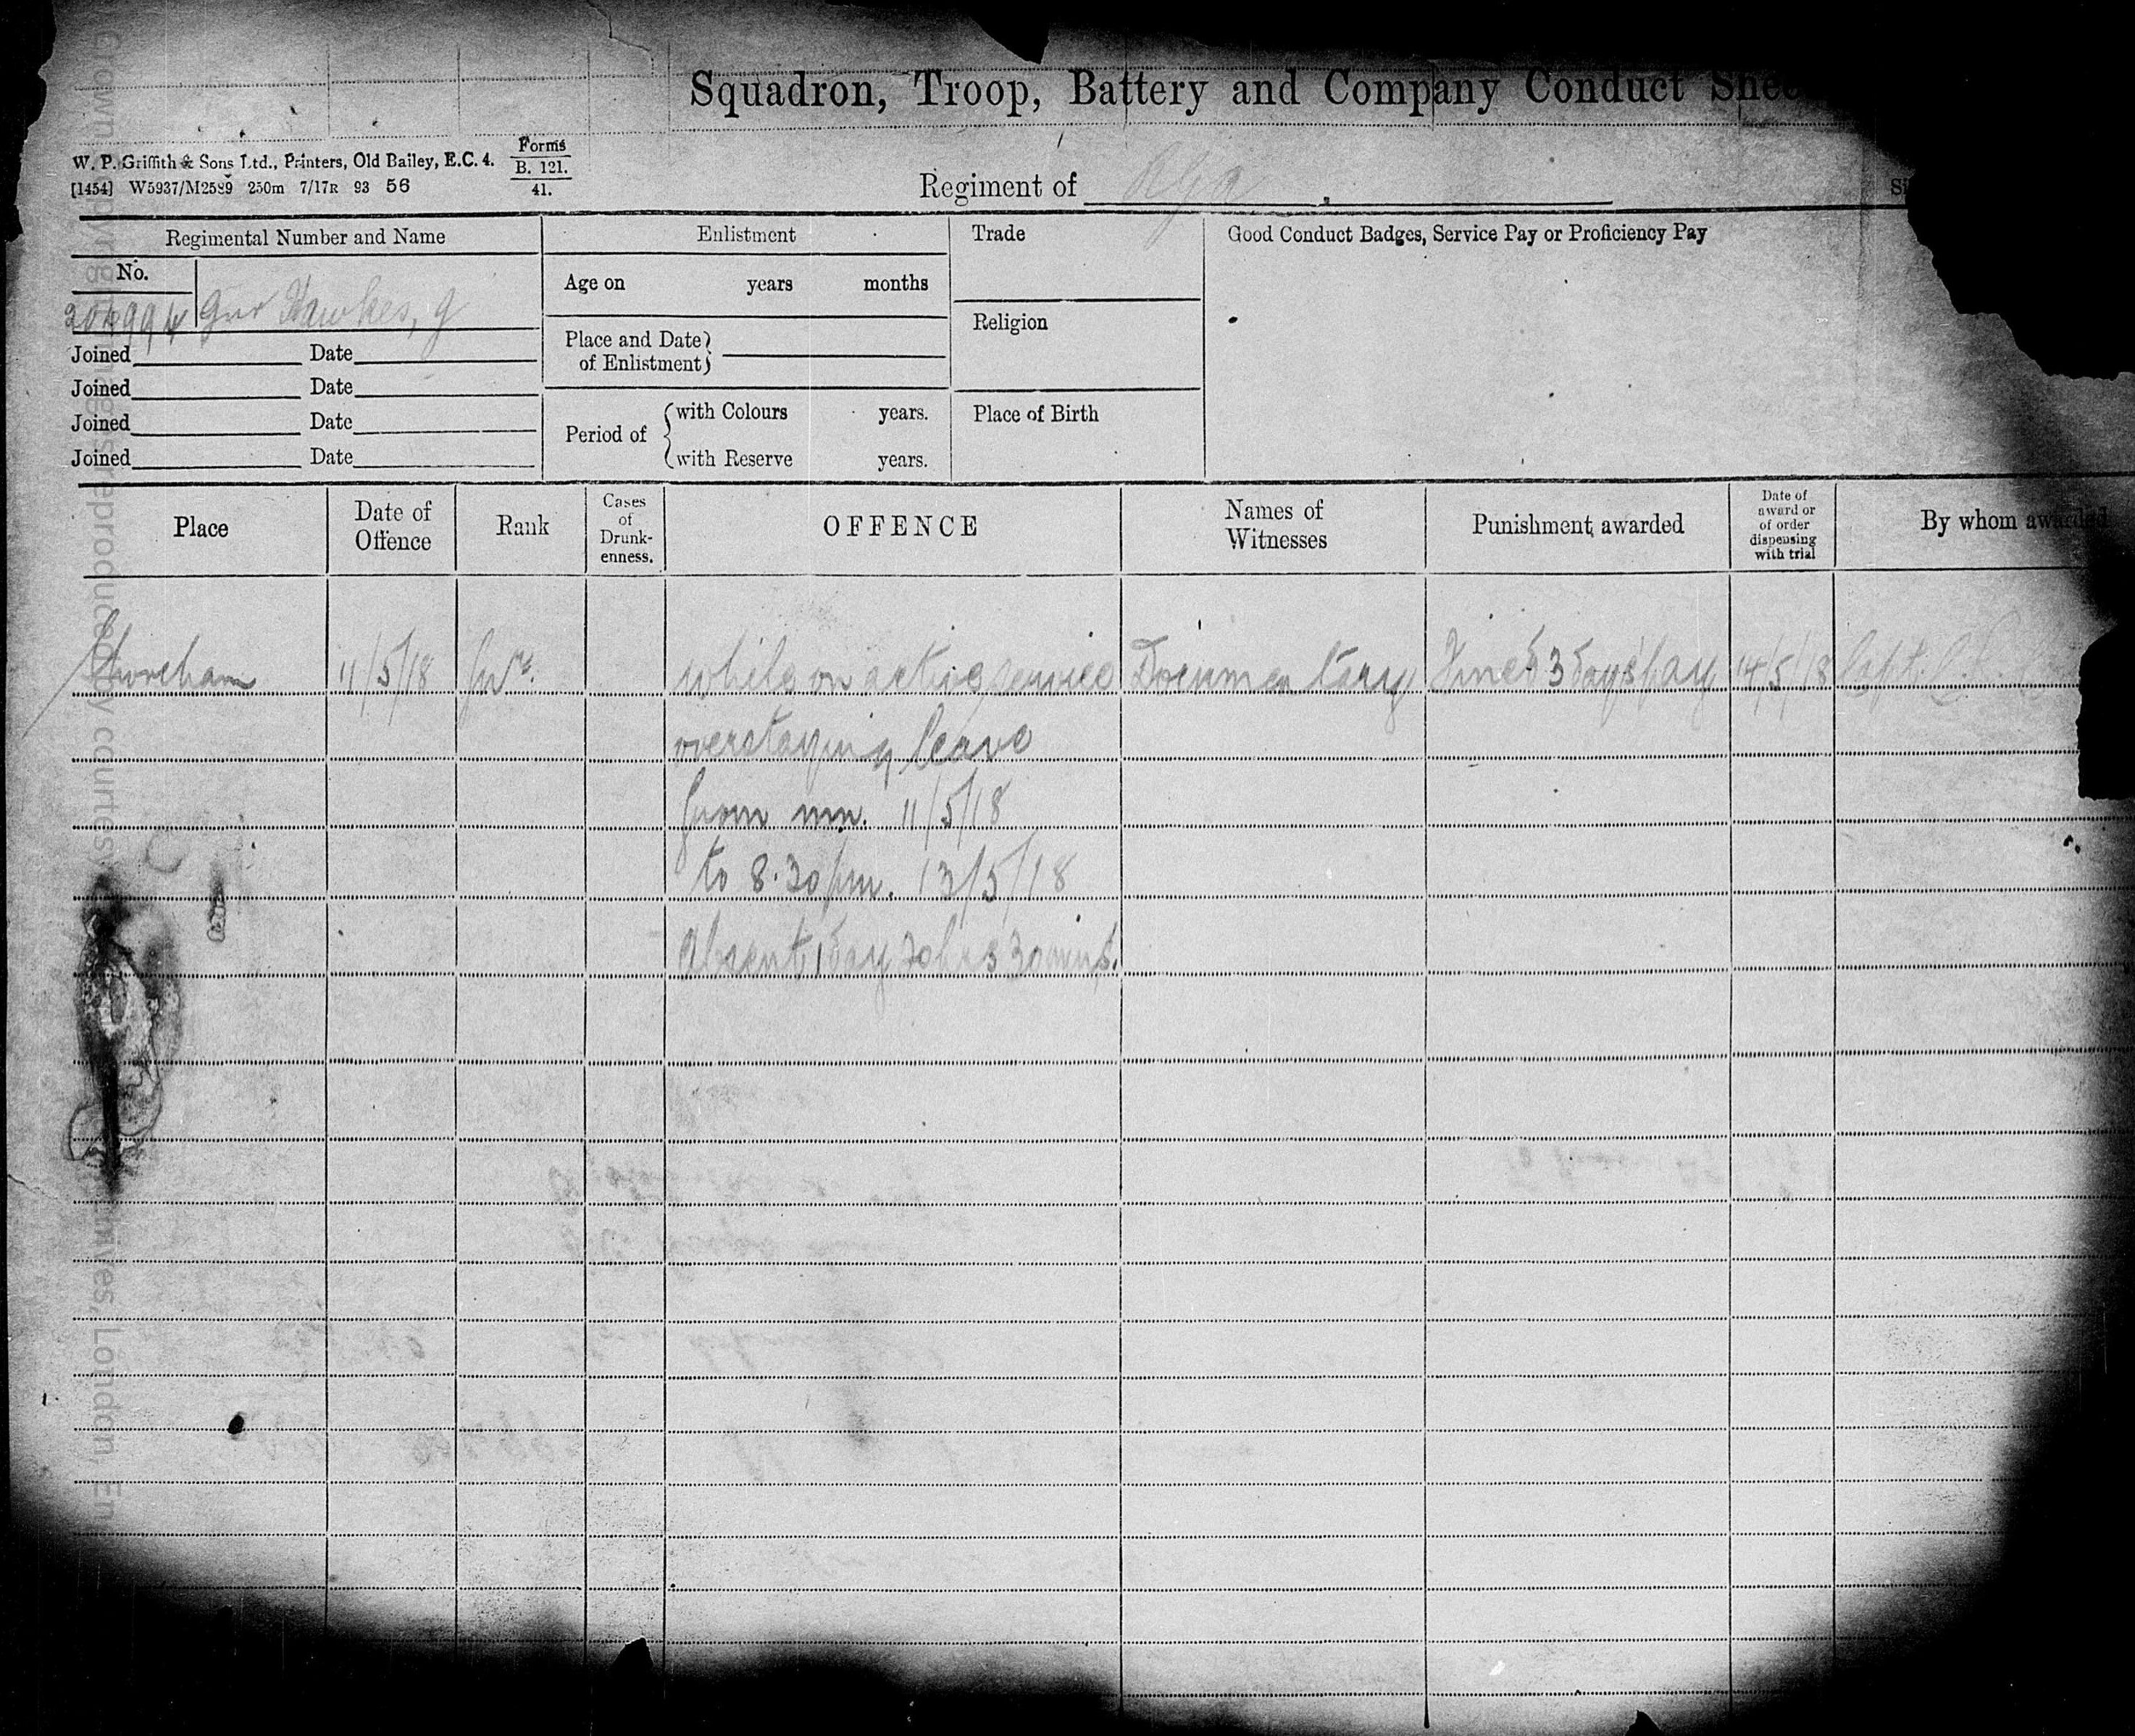 Squadron, Troop, Battery and Company Conduct
W. P. Griffith & Sons Ltd., Printers, Old Bailey, E.C. 4.
[1454] W5937/M2589 250m 7/17R 93 56
Forms
B. 121.
41.
Regiment of RGA
Regimental Number and Name
Enlistment
Trade
Good Conduct Badges, Service Pay or Proficiency Pay
No.
Gnr Hawkes, G
Age on years months
Religion
Place and Date
of Enlistment
Joined Date
Joined Date
Joined Date
Joined Date
Period of
with Colours years.
with Reserve years.
Place of Birth
Place
Date of
Offence
Rank
Cases
of
Drunk-
enness.
OFFENCE
Names of
Witnesses
Punishment awarded
Date of
award or
of order
dispensing
with trial
By whom awarded
Shoreham 11/5/18 Gnr. while on active service Documentary Fined 3 days pay 14/5/18 Capt.
overstaying leave
from mn. 11/5/18
to 8.30 pm. 13/5/18
Absent 1 day 20 hrs 30 mins.